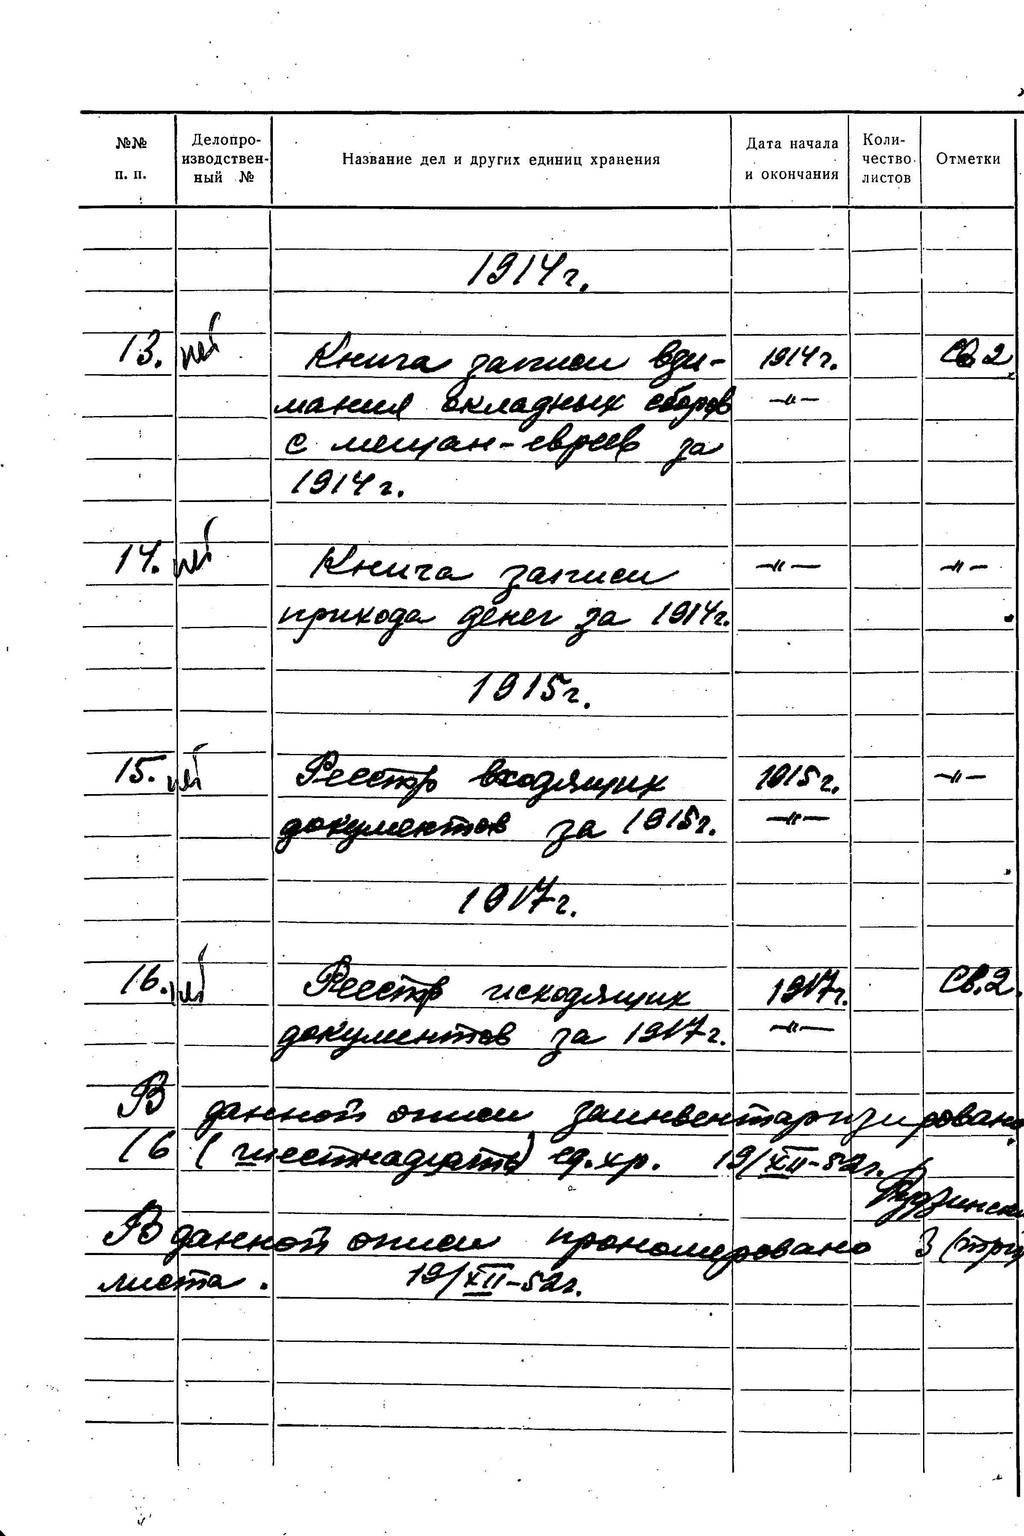 №№ п. п. Делопроизводствен-ный № Название дел и других единиц хранения Дата начала и окончания Коли-чество листов Отметки
1914г.
13. нет Книга записи взи- 1914г. Св.2
мания окладных сборов -"-
с мещан-евреев за
1914г.
14. нет Книга записи -"- -"-
прихода денег за 1914г.
1915г.
15. нет Реестр входящих 1915г. -"-
документов за 1915г. -"-
1917г.
16. нет Реестр исходящих 1917г. Св.2.
документов за 1917г. -"-
В данной описи заинвентаризировано
16 (шестнадцать) ед.хр. 19/XII-52г.
В данной описи пронумеровано 3 (три)
листа. 19/XII-52г.